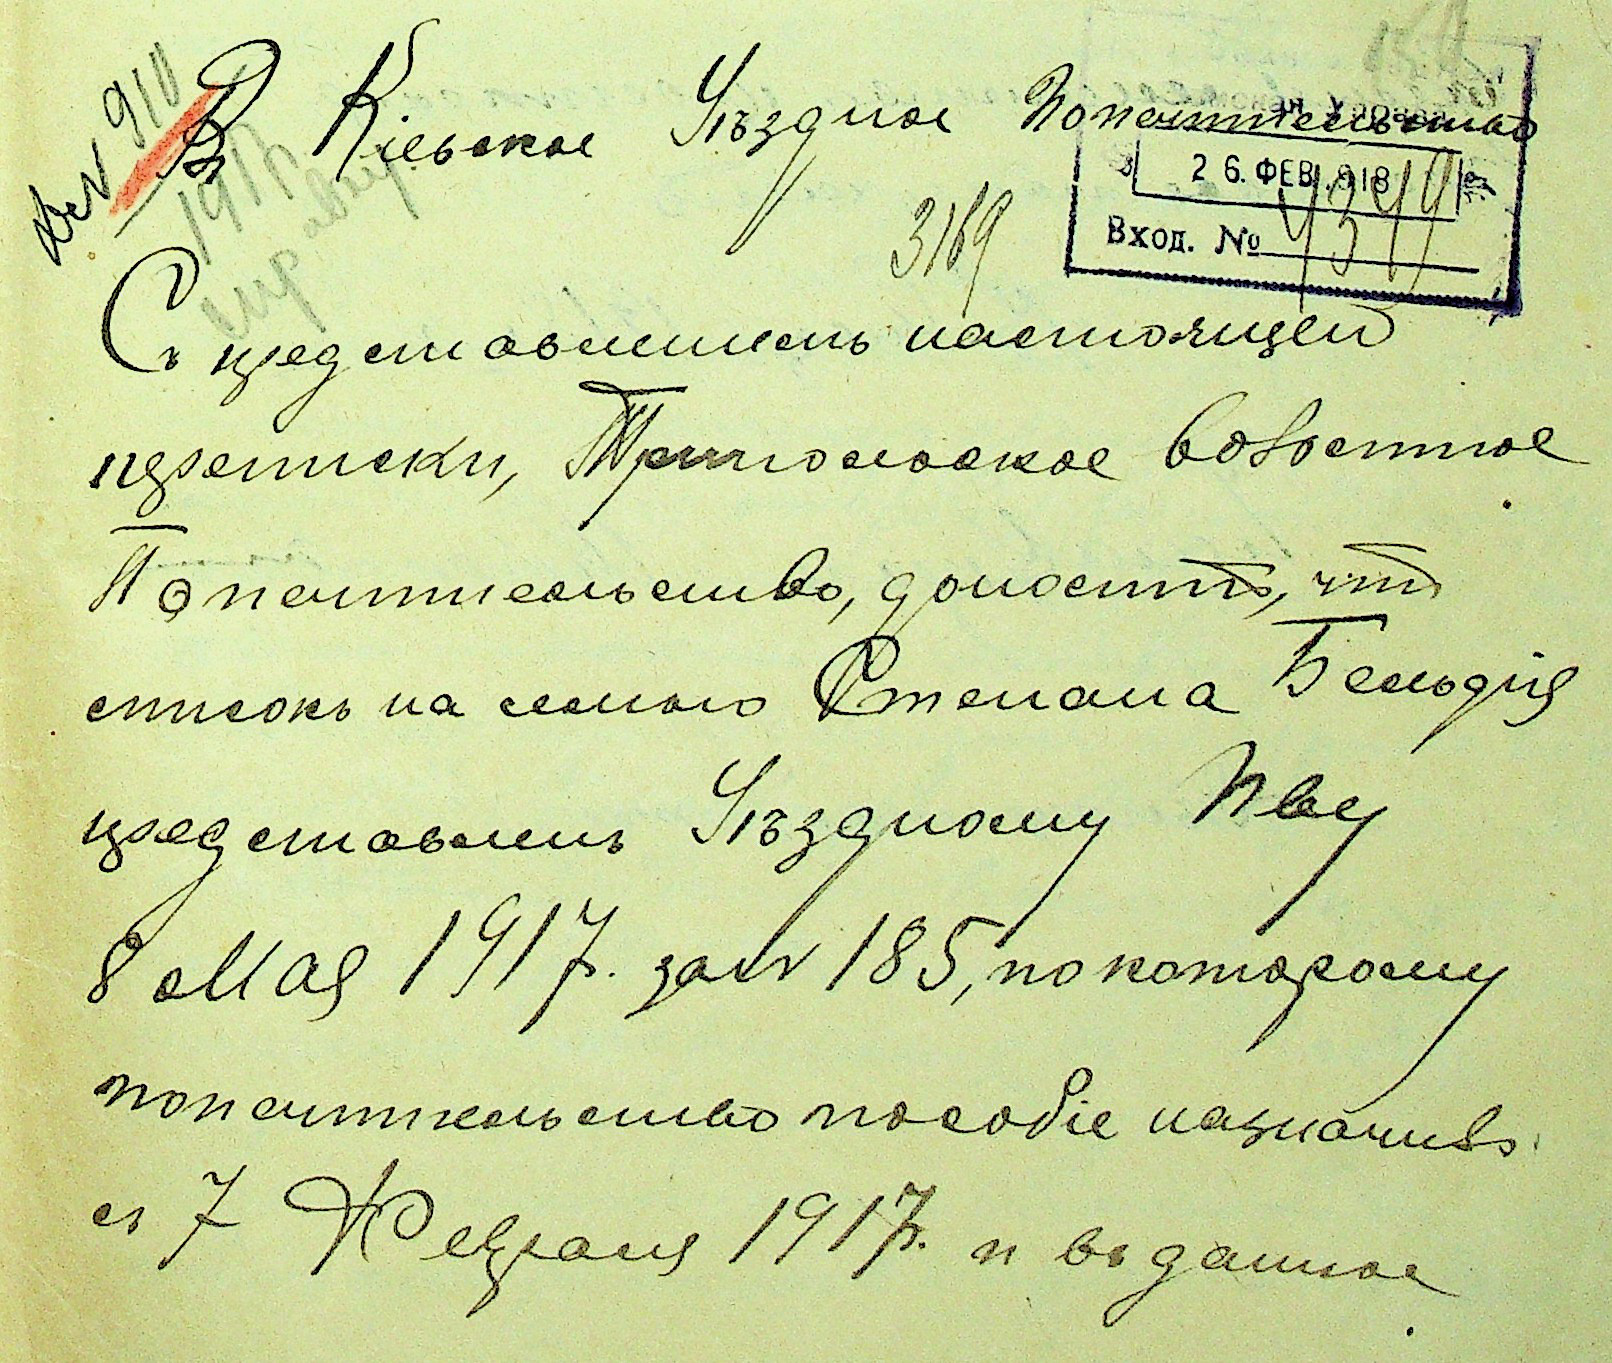 Въ Кіевское Уѣздное Попечительство
26. ФЕВ. 918
3169
Вход. № 4349
Съ представленіемъ настоящей
переписки, Трипольское волостное
Попечительство, доноситъ, что
списокъ на семью Степана Бельдія
представленъ Уѣздному П-ву
8 Мая 1917 г. за № 185, по которому
попечительство пособіе назначивъ
съ 7 Февраля 1917 г. и въ данное